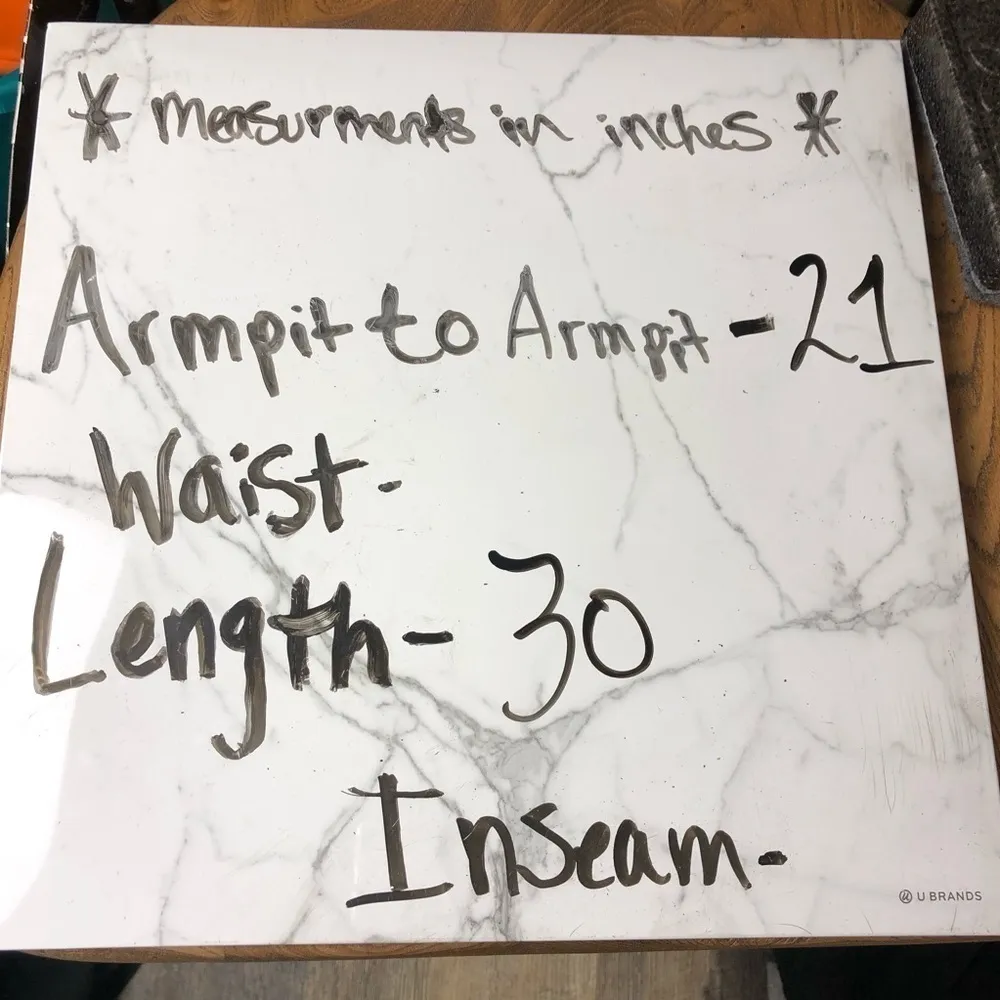 * measurments in inches *
Armpit to Armpit - 21
Waist -
Length - 30
Inseam -
U BRANDS